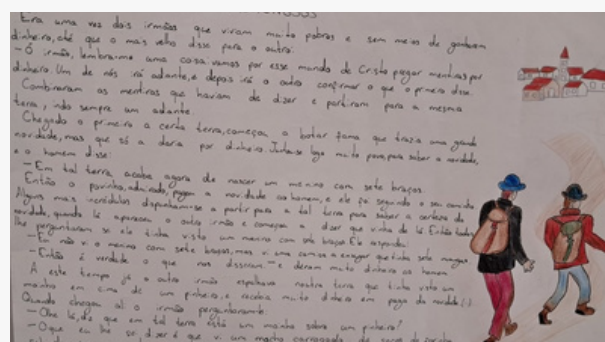 Era uma vez dois irmãos que viram muito pobres e sem meios de ganharem
dinheiro, até que o mais velho disse para o outro:
- Ó irmão, lembra-me uma coisa: vamos por esse mundo de Cristo pegar mentiras por
dinheiro. Um de nós irá adiante, e depois irá o outro confirmar o que o primeiro disse.
Combinaram as mentiras que haviam de dizer e partiram para a mesma
terra, indo sempre um adiante.
Chegado o primeiro a certa terra, começou a botar fama que trazia uma grande
novidade, mas que só a daria por dinheiro. Junta-se logo muito povo, para saber a novidade,
e o homem disse:
- Em tal terra acaba agora de nascer um menino com sete braços.
Então o povinho, admirado, pagou a novidade ao homem, e ele foi seguindo o seu caminho
Alguns mais incrédulos dispunham-se a partir para a tal terra para saber a certeza da
novidade, quando lá apareceu o outro irmão e começou a dizer que vinha de lá. Então todos
lhe perguntaram se ele tinha visto um menino com sete braços. Ele respondeu:
- Eu não vi o menino com sete braços, mas vi uma camisa a enxugar que tinha sete mangas
- Então é verdade o que nos disseram. - e deram muito dinheiro ao homem
A este tempo já o outro irmão espalhava noutra terra que tinha visto um
moinho em cima de um pinheiro, e recebia muito dinheiro em paga da novidade (...).
Quando chegou ali o irmão perguntaram-lhe:
- Olhe lá, diz que em tal terra está um moinho sobre um pinheiro?
- O que eu lhe sei dizer é que vi um macho carregado de sacos de farinha